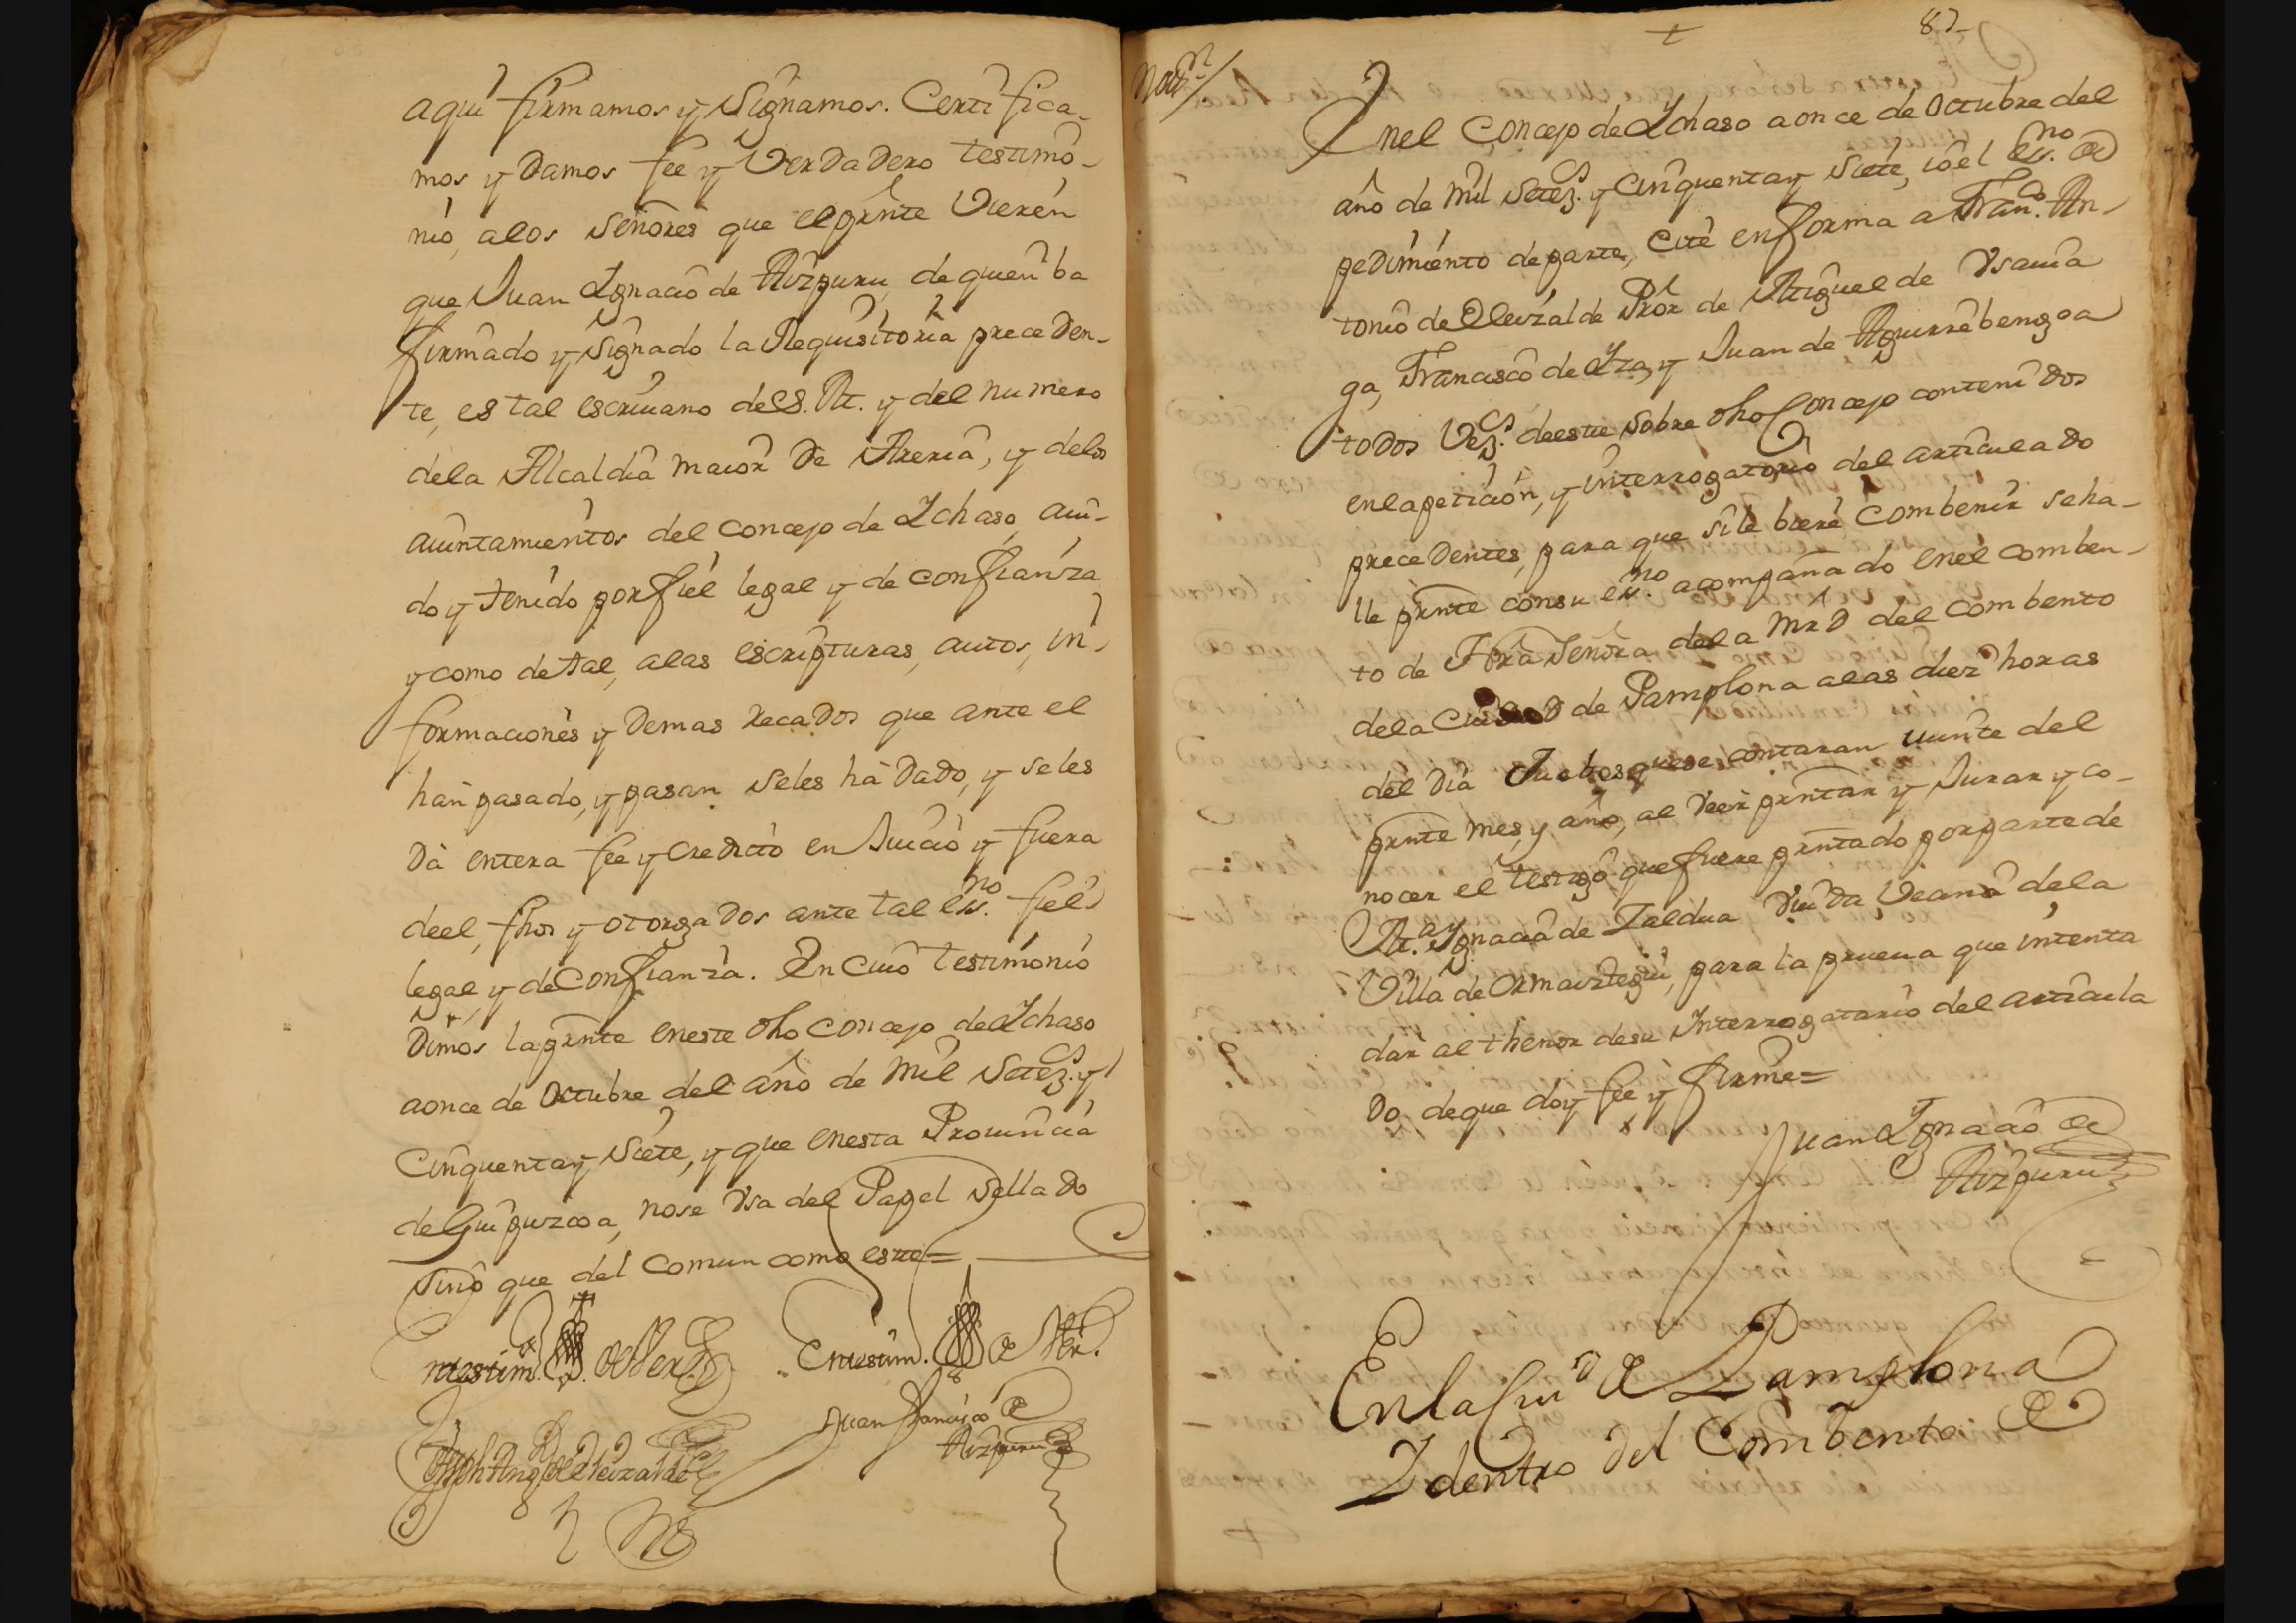 aqui firmamos y signamos. Certifica-
mos y Damos fee y Verdadero testimo-
nio, alos señores que el prnte Vieren
que Juan Ignacio de Aizpuru, de quien ba
firmado y signado la Requisitoria preceden-
te, es tal escriuano de S. M. y del numero
dela Alcaldia maior De Areria, y delos
auintamientos del concejo de Ichaso, aui-
do y tenido por fiel legal y de confianza,
y como de tal, alas escripturas, autos, in-
formaciones y Demas recados que ante el
han pasado, y pasan se les ha Dado, y se les
Dà entera fee y credicto en Juicio y fuera
de el, fhos y otorgados ante tal esno. fiel
legal, y de confianza. En cuio testimonio
Dimos la prnte en este dho concejo de Ichaso
a once de Octubre del año de Mil Setezs. y
cinquenta y siete, y que en esta Prouincia
de Guipuzcoa, no se Vsa del Papel sellado
sino que del comun como este=
En testim.º de Ver.d En testim. de Ver.
Juan Francisco de
Joseph Anto. de Oleizalde Aizpuru
87
Notn./
En el concejo de Ichaso a once de Octubre del
año de Mil Setezs. y cinquenta y siete, io el esno. de
pedimiento de parte, cite en forma a Franco. An-
tonio de Oleizalde Pror de Miguel de Vsauia
ga, Francisco de Iza, y Juan de Aguirrebengoa
todos Vezs. de este sobre dho Concejo contenidos
en la peticion, y interrogatorio del articulado
precedentes, para que si le biere combenir se ha-
lle prnte con su esno. acompañado en el comben-
to de Nra Señora dela Mrd del combento
dela Ciudad de Pamplona a las diez horas
del Dia Juebes que se contaran uinte del
prnte mes, y año, al Veer prntar y Jurar y co-
nocer el testigo que fuere prntado por parte de
Ma. Ygnacia de Zaldua Viuda Vecina dela
Villa de Ormaiztegui, para la prueua que intenta
dar al thenor de su Interrogatorio del articula
do, de que doy fee y firme=
Juan Ignacio de
Aizpuru
En la Ciud. de Pamplona
I dentro del Combento de